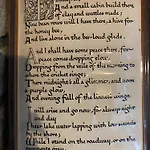 And a small cabin build there,
of clay and wattles made;
Nine bean rows will I have there, a hive for
the honey bee,
And live alone in the bee-loud glade.
And I shall have some peace there, for
peace comes dropping slow,
Dropping from the veils of the morning to
where the cricket sings;
There midnight's all a glimmer, and noon
a purple glow,
And evening full of the linnet's wings.
I will arise and go now, for always night
and day
I hear lake water lapping with low sounds
by the shore;
While I stand on the roadway, or on the
pavements grey,